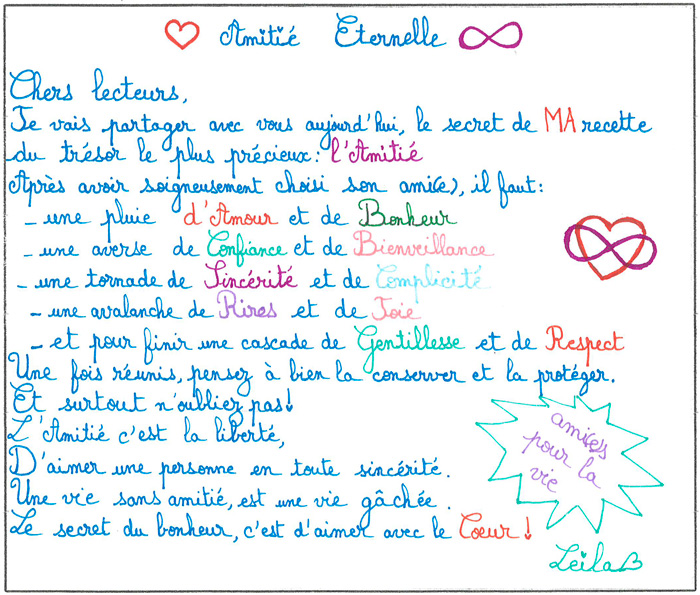 Amitié Eternelle
Chers lecteurs,
Je vais partager avec vous aujourd'hui, le secret de MA recette
du trésor le plus précieux: l'Amitié
Après avoir soigneusement choisi son ami(e), il faut:
- une pluie d'Amour et de Bonheur
- une averse de Confiance et de Bienveillance
- une tornade de Sincérité et de Complicité
- une avalanche de Rires et de Joie
- et pour finir une cascade de Gentillesse et de Respect
Une fois réunis, pensez à bien la conserver et la protéger.
Et surtout n'oubliez pas!
L'Amitié c'est la liberté,
D'aimer une personne en toute sincérité.
Une vie sans amitié, est une vie gâchée.
Le secret du bonheur, c'est d'aimer avec le Coeur!
ami(e)s
pour la
vie
Leila B